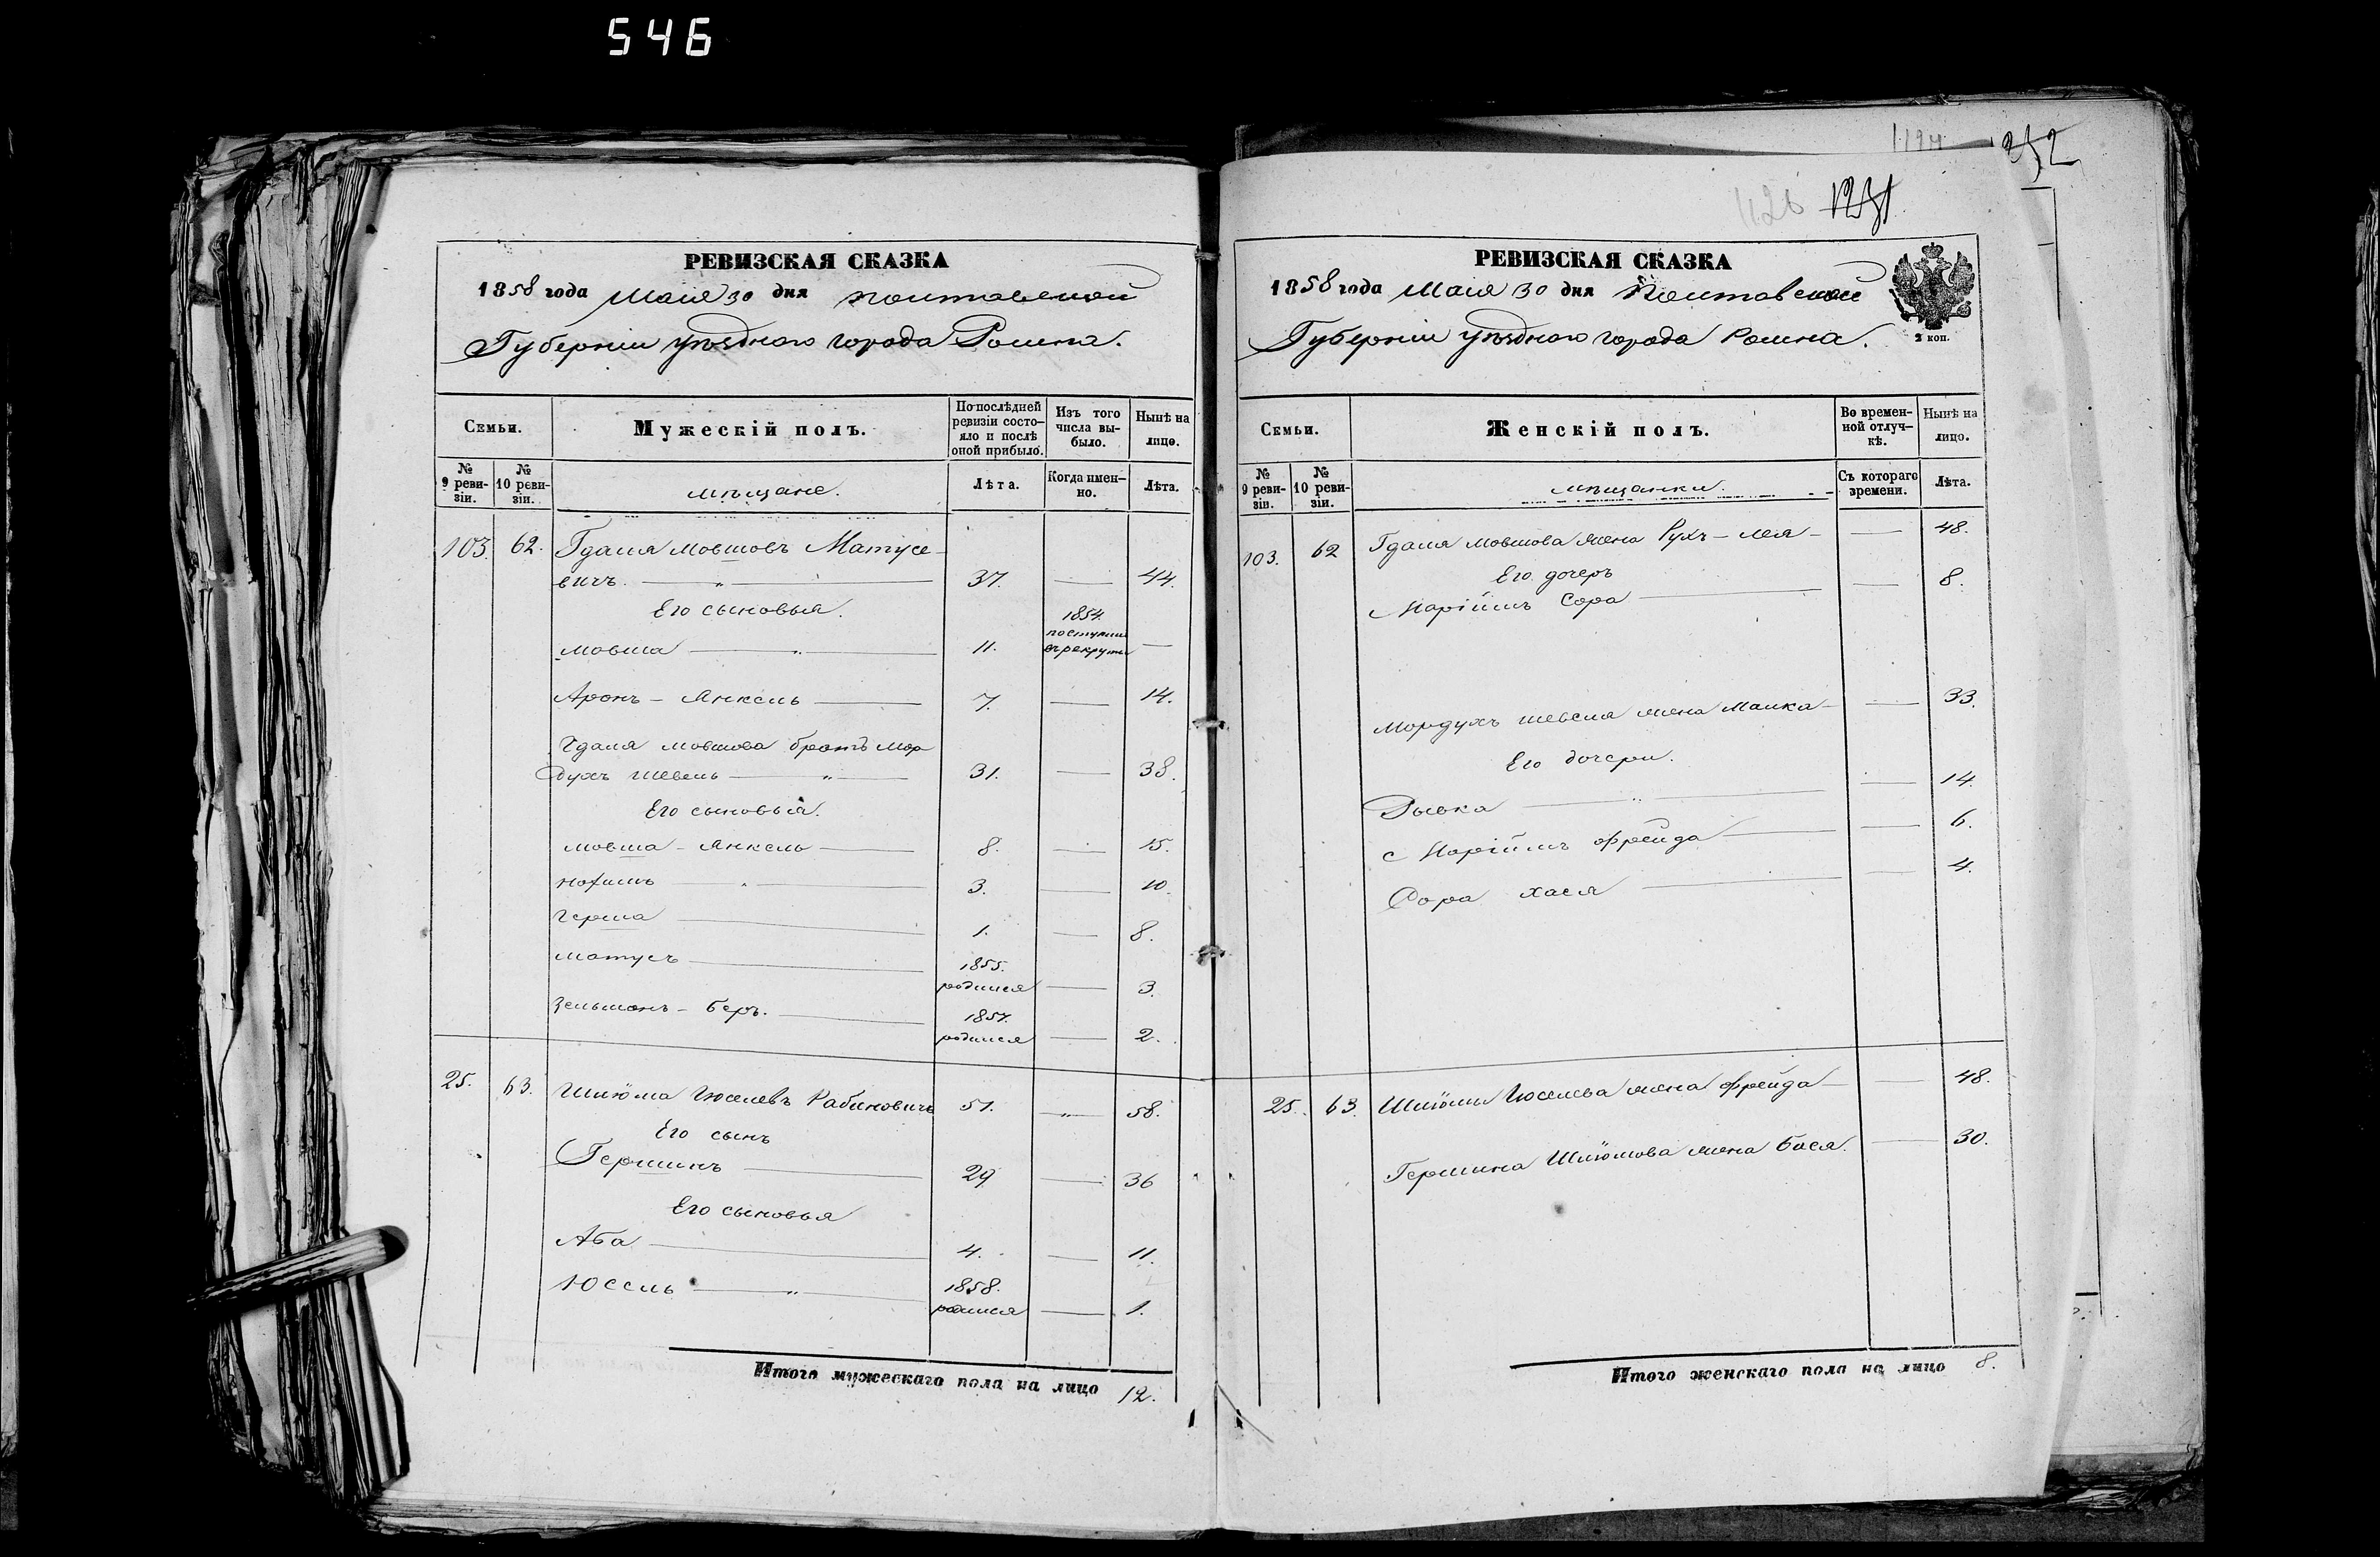 546
РЕВИЗСКАЯ СКАЗКА
1858 года Маія 30 дня Полтавской
Губерніи уѣзднаго города Ромна.
Семьи.
Мужескій полъ.
По последней ревизіи состояло и послѣ оной прибыло.
Изъ того числа выбыло.
Нынѣ на лицо.
№ 9 ревизіи.
№ 10 ревизіи.
мѣщане.
Лѣта.
Когда именно.
Лѣта.
103. 62. Гдаля Мовшовъ Матусе-
вичъ. — „ — 37. — 44.
Его сыновья.
Мовша — „ — 11. 1854. поступилъ въ рекруты —
Аронъ - Янкель — 7. — 14.
Гдаля Мовшова братъ Мор
духъ Шевель — „ — 31. — 38.
Его сыновья.
Мовша - Янкель — 8. — 15.
Нохимъ — 3. — 10.
Герша — 1. — 8.
Матусъ — 1855. родился — 3.
Зельманъ - Беръ. — 1857. родился — 2.
25. 63. Шліома Іоселевъ Рабиновичъ 51. „ 58.
Его сынъ
Гершинъ — 29 — 36
Его сыновья
Аба — 4. — 11.
Юссель — „ — 1858. родился — 1.
Итого мужескаго пола на лицо 12.
252
1126 1231
РЕВИЗСКАЯ СКАЗКА
1858 года Маія 30 дня Полтавской
Губерніи уѣзднаго города Ромна.
2 коп.
Семьи.
Женскій полъ.
Во временной отлучкѣ.
Нынѣ на лицо.
№ 9 ревизіи.
№ 10 ревизіи.
мѣщанки.
Съ котораго времени.
Лѣта.
103. 62 Гдаля Мовшова жена Рухъ - Лея - — 48.
Его дочерь
Маріймъ Сора — — 8.
Мордухъ Шевеля жена Малка — — 33.
Его дочери.
Рывка — „ — — 14.
Маріймъ Фрейда — — 6.
Сора Хася — — 4.
25. 63. Шліомы Іоселева жена Фрейда — — 48.
Гершина Шліомова жена Бася. — 30.
Итого женскаго пола на лицо 8.